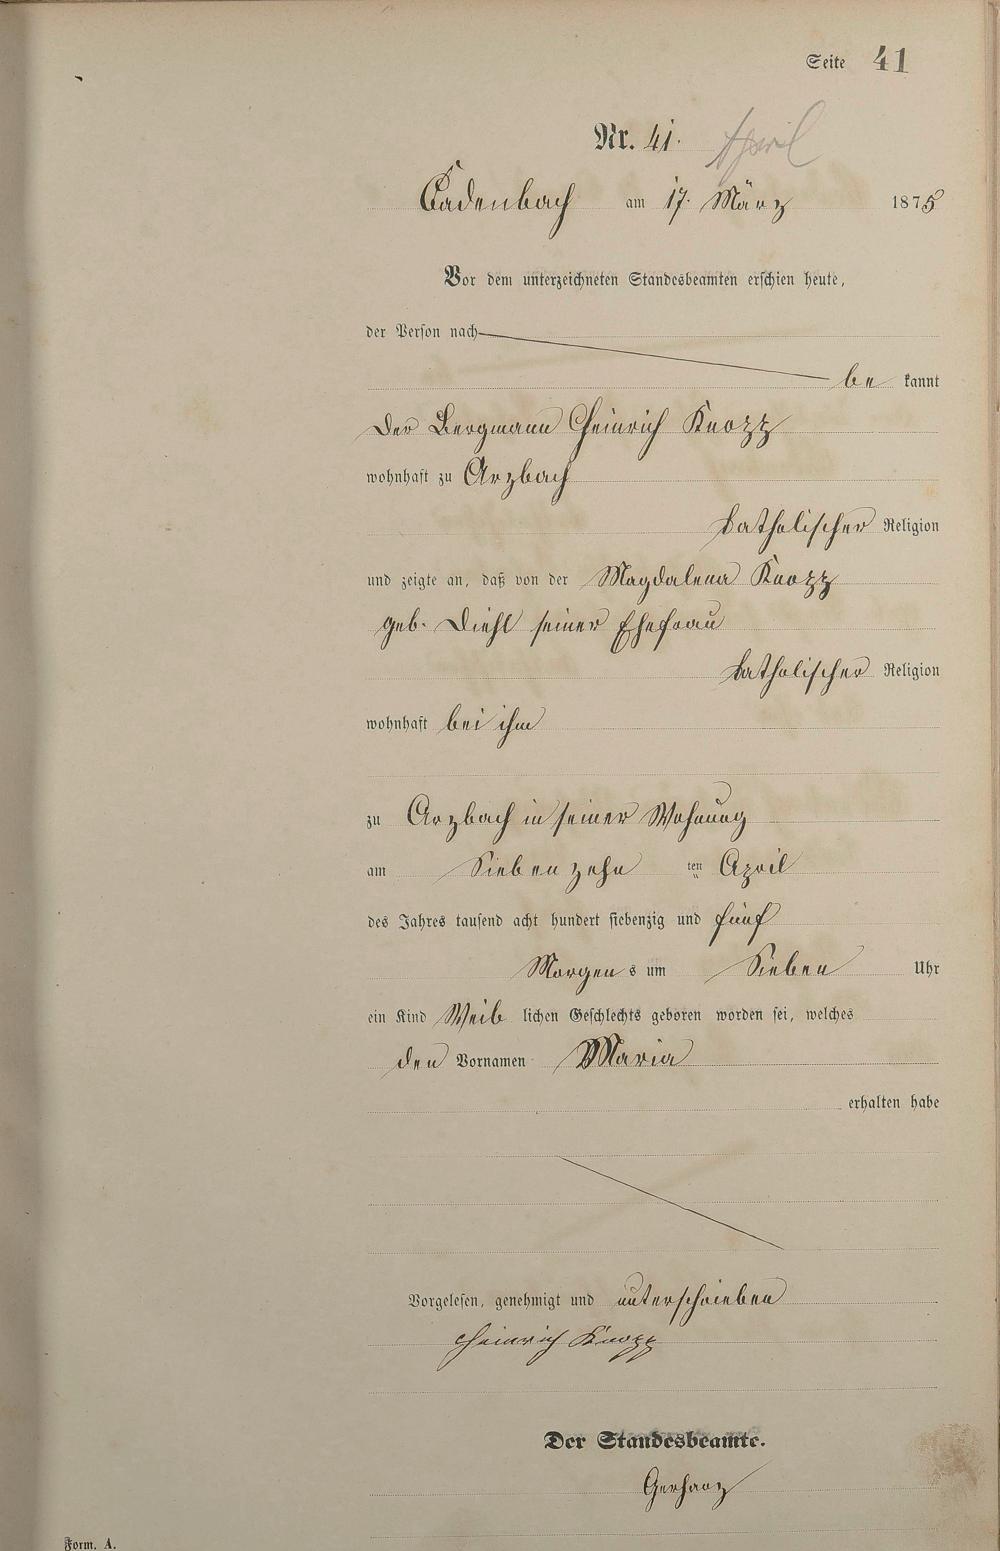 Seite 41
Nr. 41. April
Cadenbach am 17. März 1875
Vor dem unterzeichneten Standesbeamten erschien heute,
der Person nach
be kannt
Der Bergmann Heinrich Knopp
wohnhaft zu Arzbach
katholischer Religion
und zeigte an, daß von der Magdalena Knopp
geb. Diehl seiner Ehefrau
katholischer Religion
wohnhaft bei ihm
zu Arzbach in seiner Wohnung
am Siebenzehn ten April
des Jahres tausend acht hundert siebenzig und fünf
Morgen s um Sieben Uhr
ein Kind Weib lichen Geschlechts geboren worden sei, welches
den Vornamen Maria
erhalten habe
Vorgelesen, genehmigt und unterschrieben
Heinrich Knopp
Der Standesbeamte.
Gerharz
Form. A.